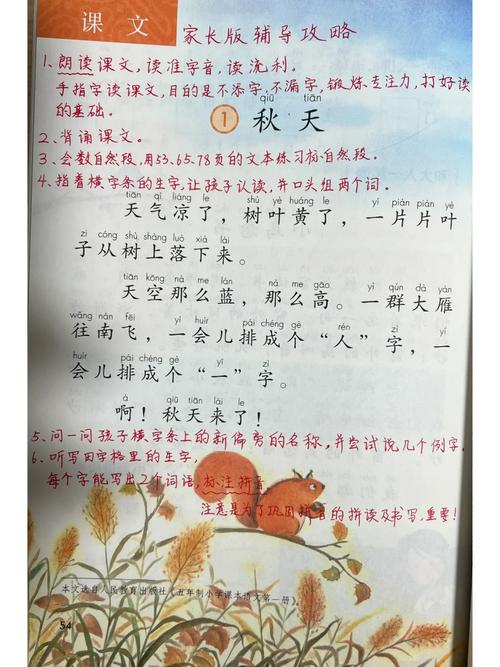 课文
家长版辅导攻略
1、朗读课文，读准字音，读流利。
手指字读课文，目的是不添字，不漏字，锻炼专注力，打好读
的基础。
qiū tiān
1 秋天
2、背诵课文。
3、会数自然段，用53.65.78页的文本练习标自然段．
4、指着横字条的生字，让孩子认读，并口头组两个词。
tiān qì liáng le shù yè huáng le yí piàn piàn yè
天气凉了，树叶黄了，一片片叶
zi cóng shù shàng luò xià lái
子从树上落下来。
tiān kōng nà me lán nà me gāo yì qún dà yàn
天空那么蓝，那么高。一群大雁
wǎng nán fēi yí huìr pái chéng gè rén zì yí
往南飞，一会儿排成个“人”字，一
huìr pái chéng gè yī zì
会儿排成个“一”字。
à qiū tiān lái le
啊！秋天来了！
5、问一问孩子横字条上的新偏旁的名称，并尝试说几个例字。
6、听写田字格里的生字，
每个字能写出2个词语，标注拼音
注意是为了巩固拼音的拼读及书写，重要！
本文选自人民教育出版社《五年制小学课本语文第一册》。
54